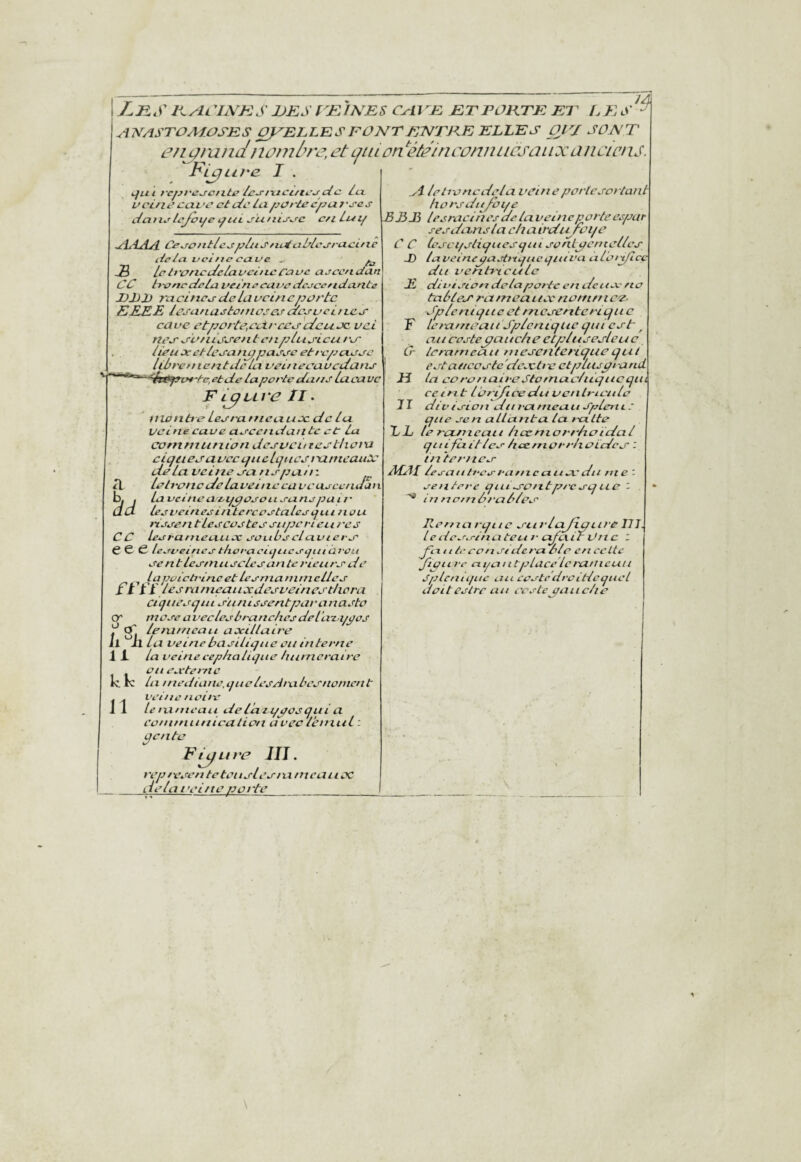 LES RACINES DES VEINES CAVE ET PORTE ET LES 14
ANASTOMOSES QVELLES FONT ENTRE ELLES QVI SONT
en grand nombre, et qui on été inconnues aux anciens.
Figure I.
qui represente les racines de La
veine cave et de la porte eparses
dans le foye qui s'unisse en Luy
AAAA Ce sont les plus nutables racine
de La veine cave
B Le tronc de la veine Cave ascendan
CC tronc de La veine cave descendante
DDDD racines de la veine porte
EEEE les anastomoses des veines
cave et porte, car ces deux vei
nes s'unissent en plusieurs
lieux et le sang passe et repasse
librement de la veine cave dans
la porte, et de La porte dans La cave
Figure II.
montre les rameaux de La
veine cave ascendante et La
communion des veines thora
ciques avec quelques rameaux
de la veine sans pair.
a le tronc de la veine cave ascendan
b, La veine azygos ou sans pair
dd les veines intercostales qui nou
rissent les costes superieures
CC les rameaux soubs claviers
e e e les veines thoraciques qui arou
sent les muscles anterieurs de
la poictrine et les mammelles
ffff les rameaux des veines thora
ciques qui s'unissent par anasto
mose avec les branches de l'azygos
g g. le rameau axillaire
h h La veine basilique ou interne
i i la veine cephalique humeraire
ou externe
k k la mediane, que les Arabes noment
veine noire
l l le rameau de l'azygos qui a
communication avec l'emul:
gente
Figure III.
represente tous les rameaux
de la veine porte
A le tronc de la veine porte sortant
hors du foye
BBB les racines de la veine porte espar
ses dans la chair du foye
C C les cystiques qui sont gemelles
D la veine gastrique qui va a l'orifice
du ventricule
E division de la porte en deux no
tables rameaux nommez
Splenique et mesenterique
F le rameau Splenique qui est
au coste gauche et plus esleue
G le rameau mesenterique qui
est au coste dextre et plus grand
H la coronaire Stomachique qui
ceint l'orifice du ventricule
II division du rameau spleni:
que sen allant a la ratte
LL le rameau hæmorrhoidal
qui fait les hæmorrhoides:
internes
MM les autres rameaux du me:
sentere qui sont presque:
innombrables
Remarque sur la figure III.
le dessinateur a fait Vne:
faute considerable en cette
figure ayant place le rameau
splenique au coste droit lequel
doit estre au coste gauche